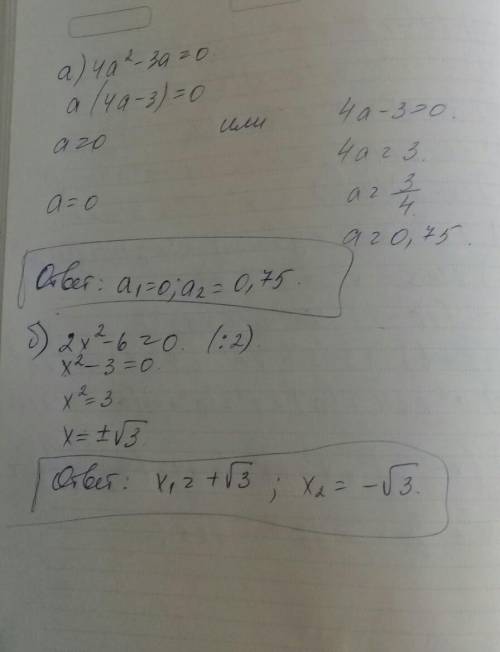 а) 4a² - 3a = 0
a (4a - 3) = 0
a = 0 или 4a - 3 = 0.
4a = 3.
a = 0 a = 3/4
a = 0,75.
Ответ: a₁ = 0; a₂ = 0,75.
б) 2x² - 6 = 0. (:2).
x² - 3 = 0.
x² = 3
x = ±√3
Ответ: x₁ = +√3 ; x₂ = -√3.